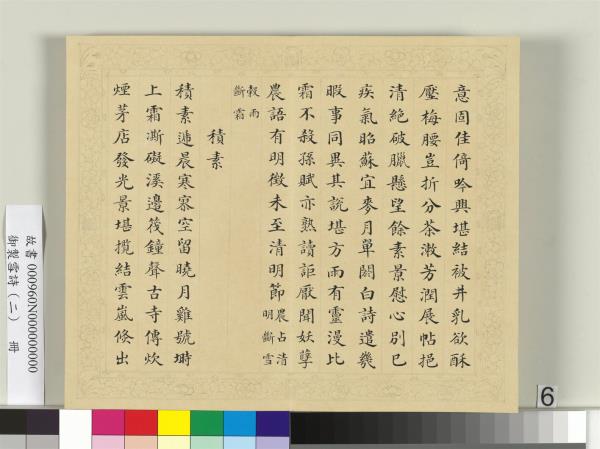 意固佳倚吟興堪結被井乳欲酥
壓梅腰豈折分茶潄芳潤展帖挹
清絶破臘懸望餘素景慰心別已
疾氣昭蘇宜麥月單闕白詩遣幾
暇事同異其說堪方雨有靈漫比
霜不殺孫賦亦熟讀詎厭聞妖孽
農語有明徵未至清明節農占清明斷雪
穀雨斷霜
積素
積素遞晨寒寥空留曉月雞號塒
上霜澌礙溪邊筏鐘聲古寺傳炊
煙茅店發光景堪攬結雲嵐倏出
故書 000960N000000000
御製雪詩（二） 冊
6